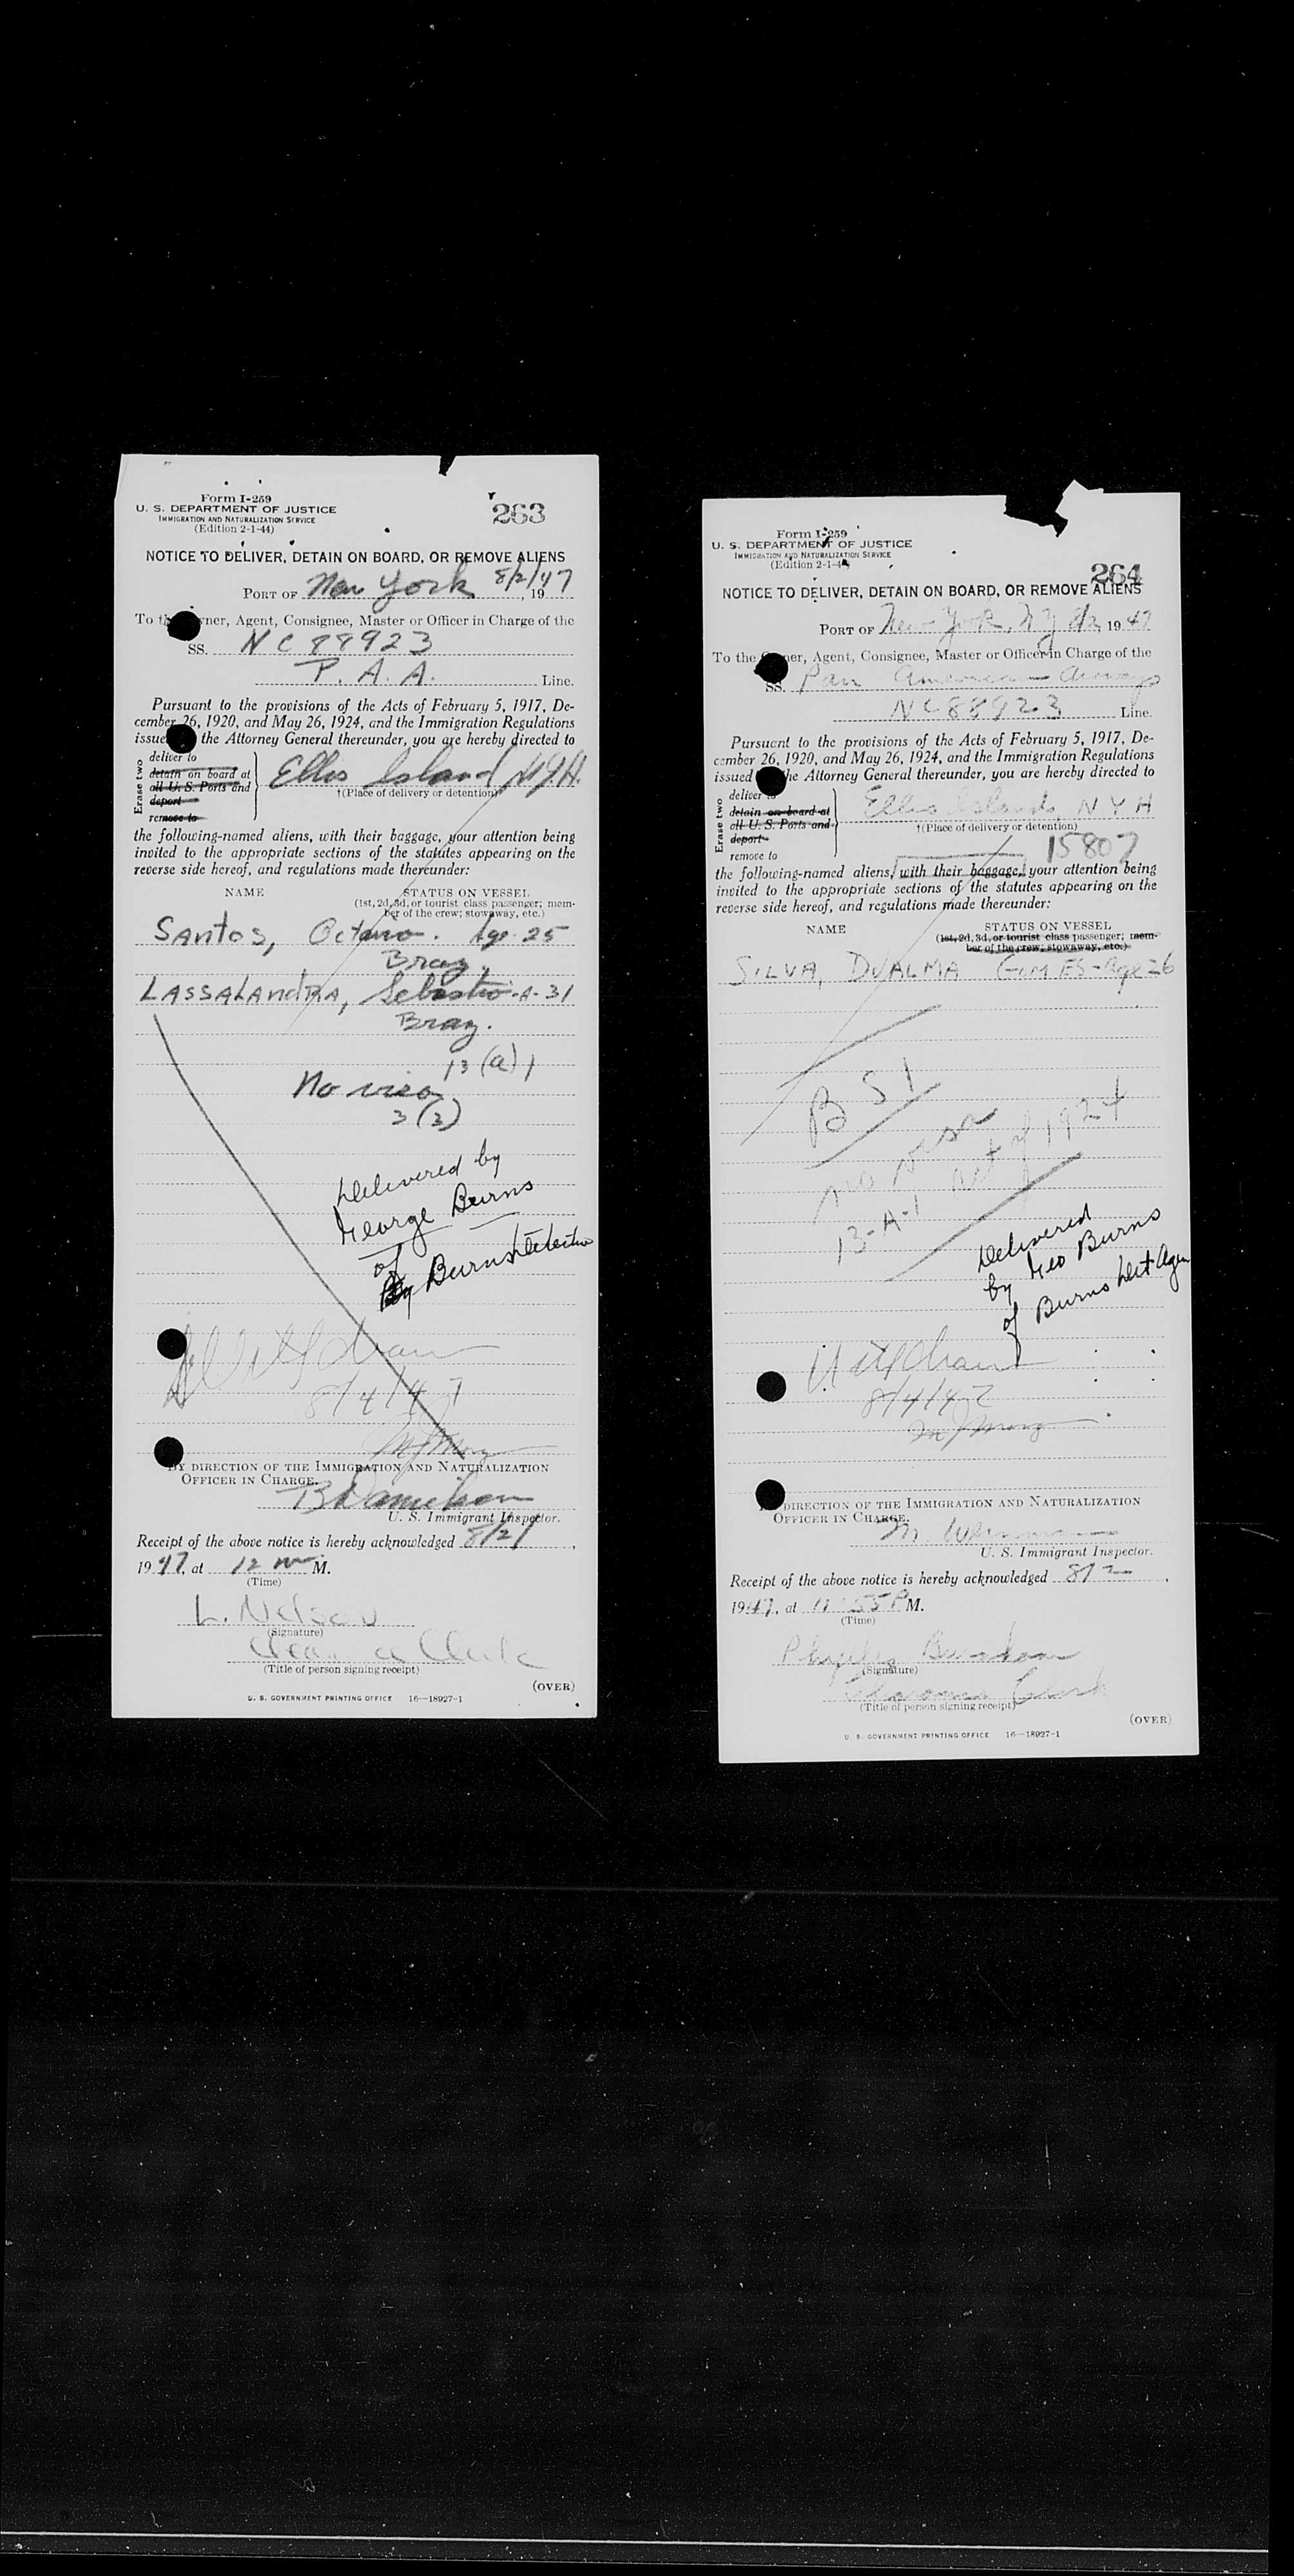 Form I-259
U. S. DEPARTMENT OF JUSTICE
IMMIGRATION AND NATURALIZATION SERVICE
(Edition 2-1-44)
263
NOTICE TO DELIVER, DETAIN ON BOARD, OR REMOVE ALIENS
PORT OF New York 8/2/47, 19
To the Owner, Agent, Consignee, Master or Officer in Charge of the
SS. NC88923
P. A. A. Line.
Pursuant to the provisions of the Acts of February 5, 1917, De-
cember 26, 1920, and May 26, 1924, and the Immigration Regulations
issued the Attorney General thereunder, you are hereby directed to
Erase two
deliver to
detain on board at
all U. S. Ports and
deport
remove to
Ellis Island N.Y.H.
†(Place of delivery or detention)
the following-named aliens, with their baggage, your attention being
invited to the appropriate sections of the statutes appearing on the
reverse side hereof, and regulations made thereunder:
NAME STATUS ON VESSEL
(1st, 2d, 3d, or tourist class passenger; mem-
ber of the crew; stowaway, etc.)
Santos, Octavio. Age 25
Braz.
LASSALANDRA, Sebastio - A - 31
Braz.
13 (a) 1
No visa
3 (2)
Delivered by
George Burns
of
Burns Detective
Withdrawn
8/4/47
BY DIRECTION OF THE IMMIGRATION AND NATURALIZATION
OFFICER IN CHARGE.
U. S. Immigrant Inspector.
Receipt of the above notice is hereby acknowledged 8/2/,
1947, at 12 M.
(Time)
L. Nelson
(Signature)
Clerk
(Title of person signing receipt)
(OVER)
U. S. GOVERNMENT PRINTING OFFICE 16—18927-1
Form I-259
U. S. DEPARTMENT OF JUSTICE
IMMIGRATION AND NATURALIZATION SERVICE
(Edition 2-1-44)
264
NOTICE TO DELIVER, DETAIN ON BOARD, OR REMOVE ALIENS
PORT OF New York, NY 8/2, 1947
To the Owner, Agent, Consignee, Master or Officer in Charge of the
SS. Pan American Airways
NC88923 Line.
Pursuant to the provisions of the Acts of February 5, 1917, De-
cember 26, 1920, and May 26, 1924, and the Immigration Regulations
issued the Attorney General thereunder, you are hereby directed to
Erase two
deliver to
detain on board at
all U. S. Ports and
deport
remove to
Ellis Island, NYH
†(Place of delivery or detention)
15807
the following-named aliens, with their baggage, your attention being
invited to the appropriate sections of the statutes appearing on the
reverse side hereof, and regulations made thereunder:
NAME STATUS ON VESSEL
(1st, 2d, 3d, or tourist class passenger; mem-
ber of the crew; stowaway, etc.)
SILVA, DJALMA GOMES - Age 26
B S I
no visa
13-A-1 Act of 1924
Delivered
by Geo Burns
of Burns Det Agen
Withdrawn
8/4/47
DIRECTION OF THE IMMIGRATION AND NATURALIZATION
OFFICER IN CHARGE.
U. S. Immigrant Inspector.
Receipt of the above notice is hereby acknowledged 8/2,
1947, at 11:55 P M.
(Time)
Phyllis
(Signature)
Clearance Clerk
(Title of person signing receipt)
(OVER)
U. S. GOVERNMENT PRINTING OFFICE 16—18927-1